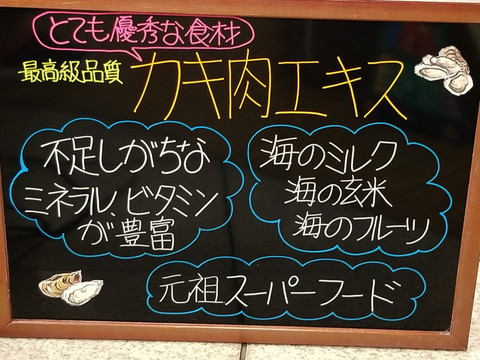 とても優秀な食材
最高級品質
カキ肉エキス
不足しがちな
ミネラル、ビタミン
が豊富
海のミルク
海の玄米
海のフルーツ
元祖スーパーフード